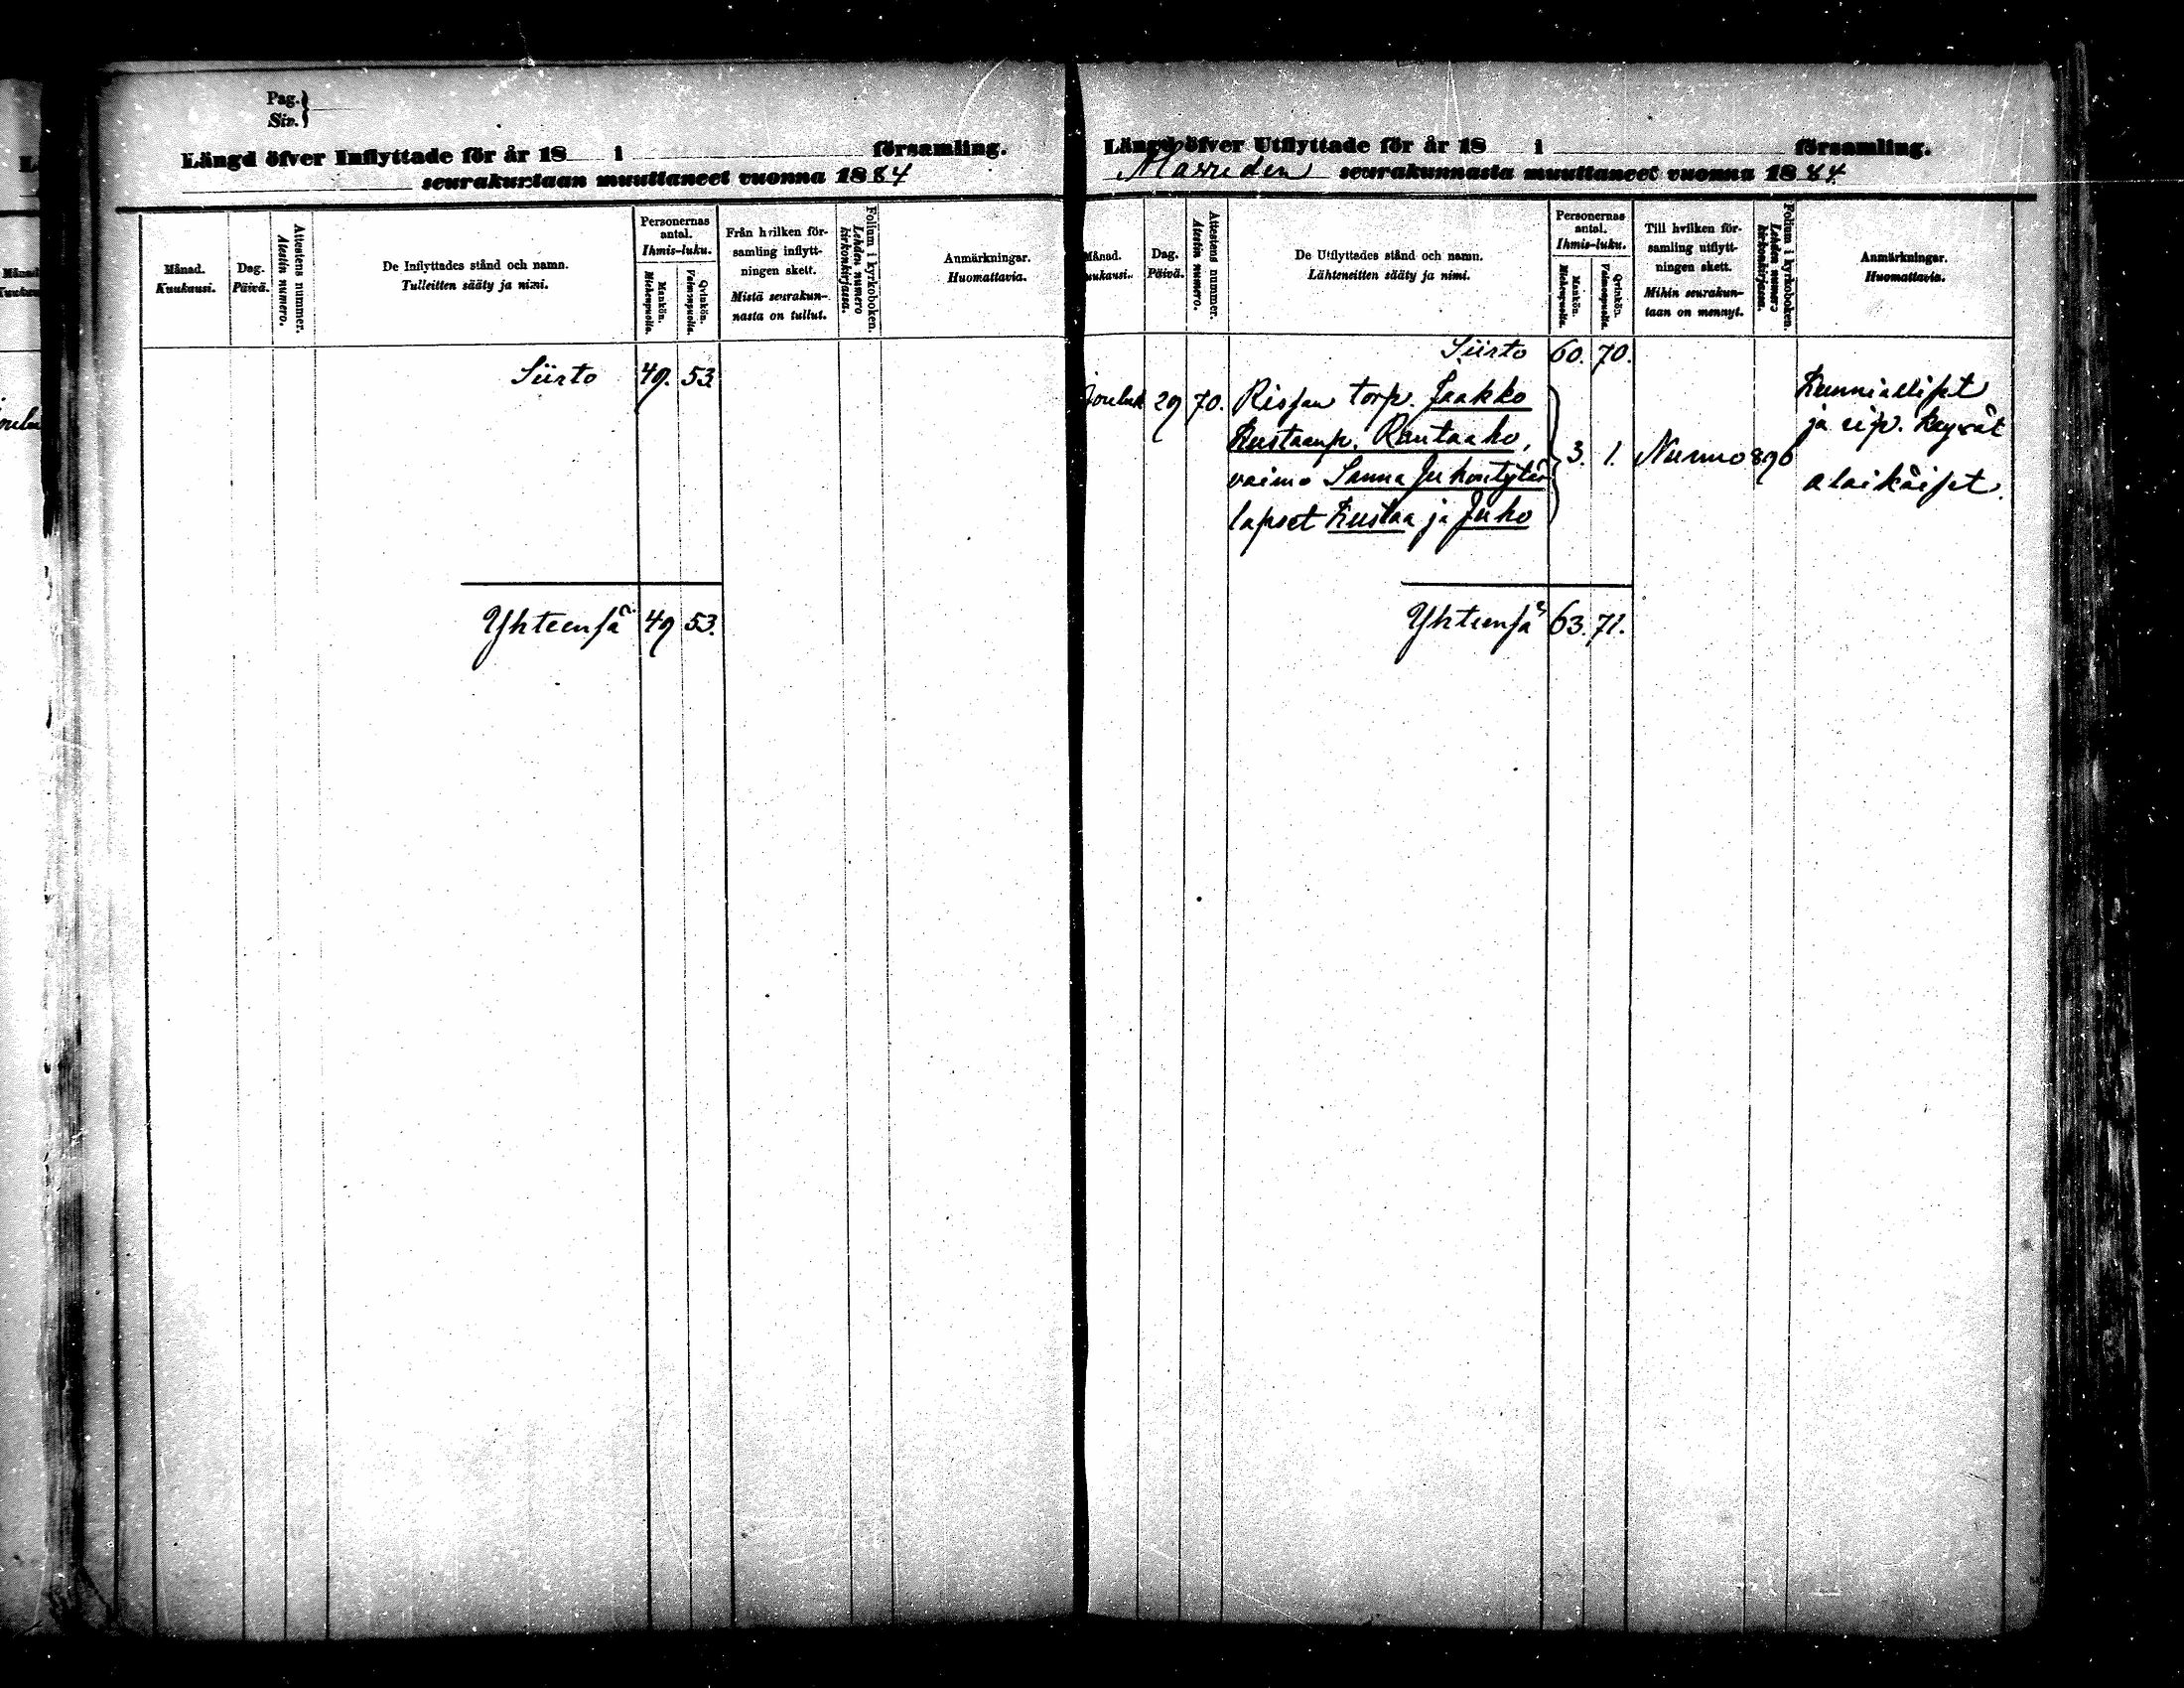 Pag.
Siv.
Längd öfver Inflyttade för år 18 i församling.
seurakuntaan muuttaneet vuonna 1884
Månad.
Kuukausi.
Dag.
Päivä.
Attestens nummer.
Atestin numero.
De Inflyttades stånd och namn.
Tulleitten sääty ja nimi.
Personernas
antal.
Ihmis-luku.
Mankön.
Miehenpuolia.
Qvinkön.
Vaimonpuolia.
Från hvilken för-
samling inflytt-
ningen skett.
Mistä seurakun-
nasta on tullut.
Folium i kyrkoboken.
Lehden numero
kirkonkirjassa.
Anmärkningar.
Huomattavia.
Siirto 49. 53.
Yhteensä 49 53.
Längd öfver Utflyttade för år 18 i församling.
seurakunnasta muuttaneet vuonna 1884.
Månad.
Kuukausi.
Dag.
Päivä.
Attestens nummer.
Atestin numero.
De Utflyttades stånd och namn.
Lähteneitten sääty ja nimi.
Personernas
antal.
Ihmis-luku.
Mankön.
Miehenpuolia.
Qvinkön.
Vaimonpuolia.
Till hvilken för-
samling utflytt-
ningen skett.
Mihin seurakun-
taan on mennyt.
Folium i kyrkoboken.
Lehden numero
kirkonkirjassa.
Anmärkningar.
Huomattavia.
Siirto 60. 70.
Jouluk 29 70. torp. Jaakko Kunnialliset
Kustaanp. Rautaaho, ja rip. käyvät
vaimo Sanna Juhontytär 3. 1. Nummo 896
lapset Kustaa ja Juho alaikäiset.
Yhteensä 63. 71.